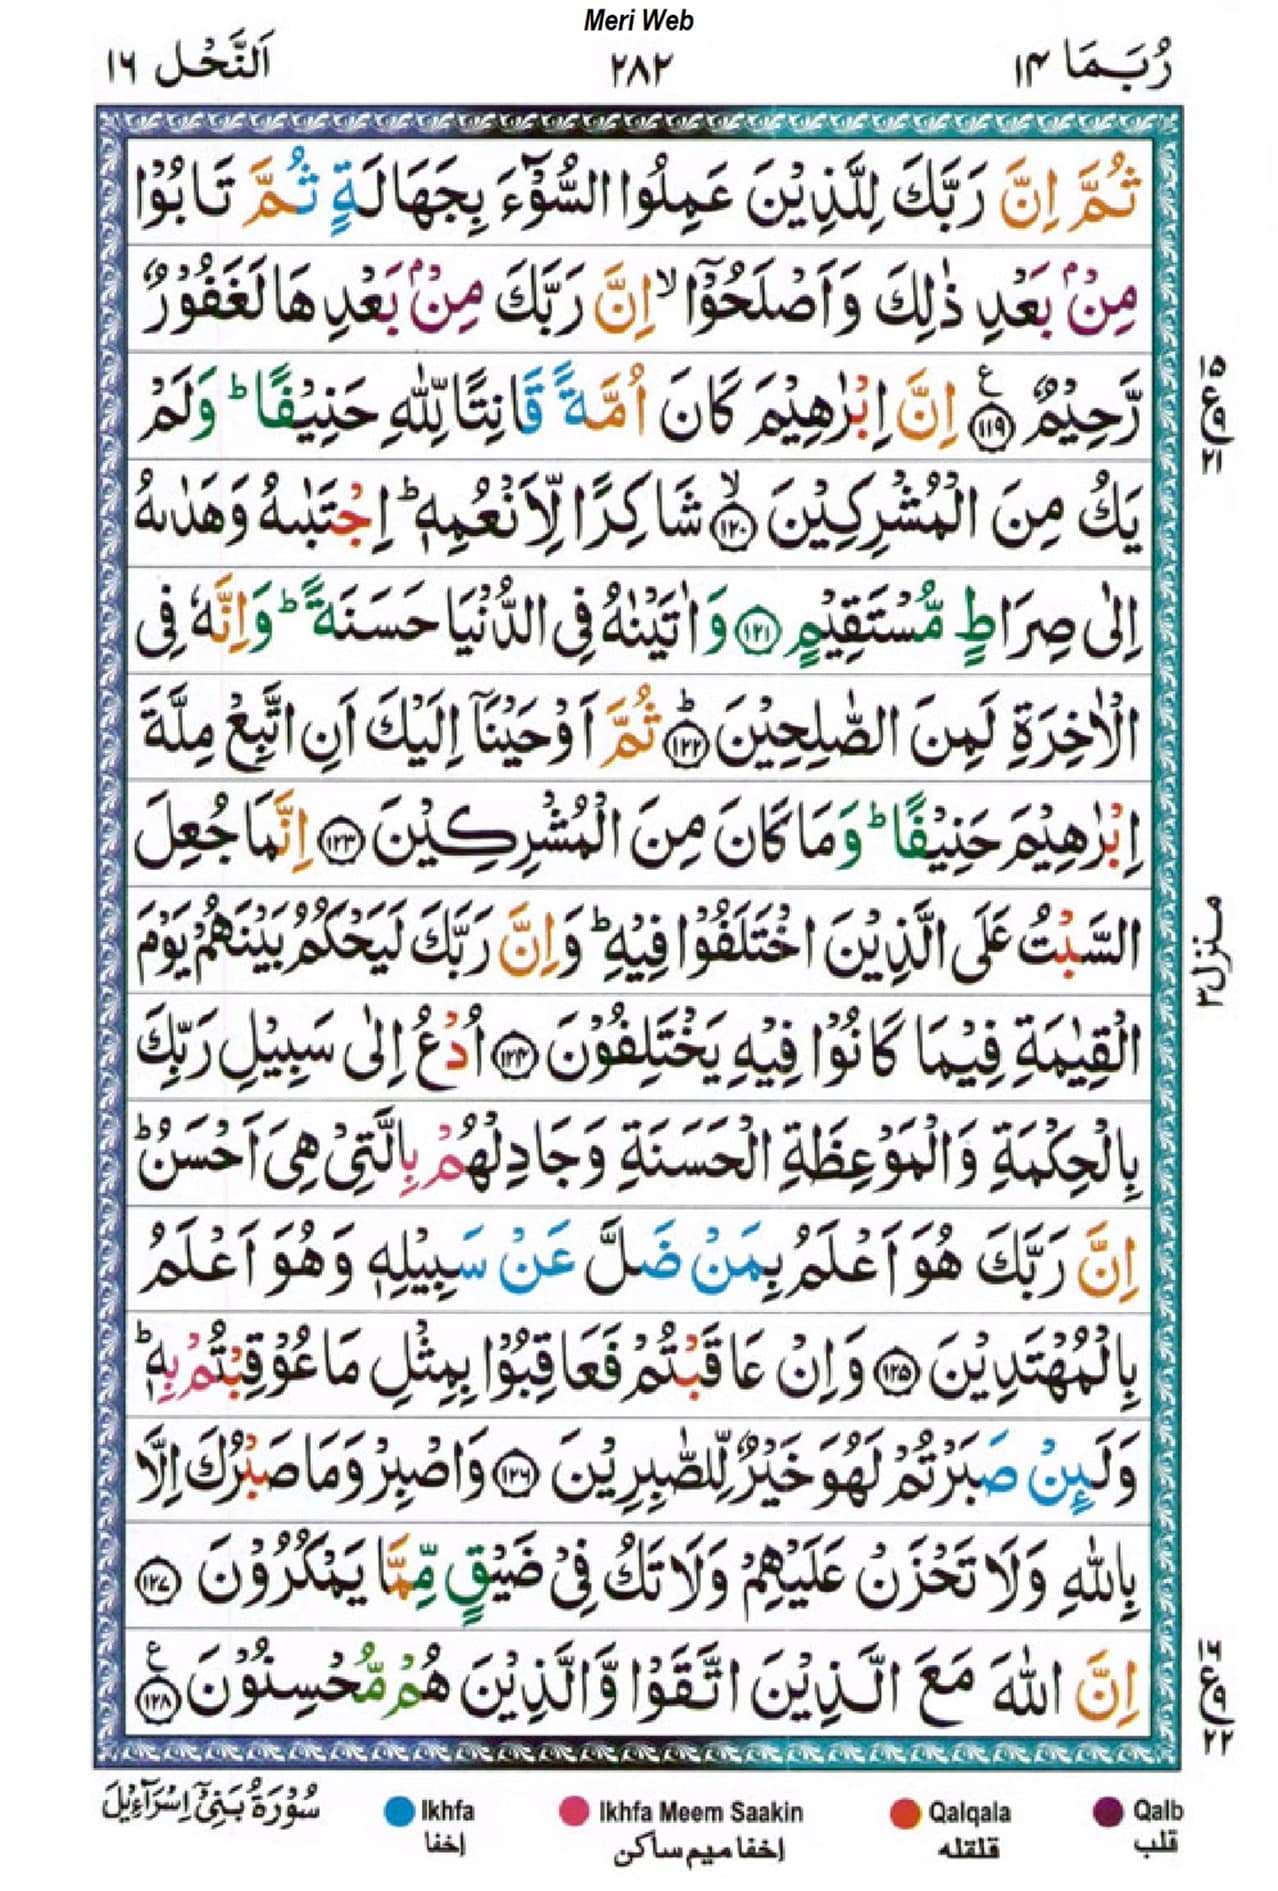 Meri Web
رُبَمَا ١٤
٢٨٢
اَلنَّحْل ١٦
ثُمَّ اِنَّ رَبَّكَ لِلَّذِيْنَ عَمِلُوا السُّوْٓءَ بِجَهَالَةٍ ثُمَّ تَابُوْا
مِنْۢ بَعْدِ ذٰلِكَ وَاَصْلَحُوْٓا ۙ اِنَّ رَبَّكَ مِنْۢ بَعْدِهَا لَغَفُوْرٌ
رَّحِيْمٌ ۧ ﴿١١٩﴾ اِنَّ اِبْرٰهِيْمَ كَانَ اُمَّةً قَانِتًا لِّلّٰهِ حَنِيْفًا ؕ وَلَمْ
يَكُ مِنَ الْمُشْرِكِيْنَ ۙ ﴿١٢٠﴾ شَاكِرًا لِّاَنْعُمِهٖ ؕ اِجْتَبٰىهُ وَهَدٰىهُ
اِلٰى صِرَاطٍ مُّسْتَقِيْمٍ ﴿١٢١﴾ وَاٰتَيْنٰهُ فِى الدُّنْيَا حَسَنَةً ؕ وَاِنَّهٗ فِى
الْاٰخِرَةِ لَمِنَ الصّٰلِحِيْنَ ؕ ﴿١٢٢﴾ ثُمَّ اَوْحَيْنَآ اِلَيْكَ اَنِ اتَّبِعْ مِلَّةَ
اِبْرٰهِيْمَ حَنِيْفًا ؕ وَمَا كَانَ مِنَ الْمُشْرِكِيْنَ ﴿١٢٣﴾ اِنَّمَا جُعِلَ
السَّبْتُ عَلَى الَّذِيْنَ اخْتَلَفُوْا فِيْهِ ؕ وَاِنَّ رَبَّكَ لَيَحْكُمُ بَيْنَهُمْ يَوْمَ
الْقِيٰمَةِ فِيْمَا كَانُوْا فِيْهِ يَخْتَلِفُوْنَ ﴿١٢٤﴾ اُدْعُ اِلٰى سَبِيْلِ رَبِّكَ
بِالْحِكْمَةِ وَالْمَوْعِظَةِ الْحَسَنَةِ وَجَادِلْهُمْ بِالَّتِىْ هِىَ اَحْسَنُ ؕ
اِنَّ رَبَّكَ هُوَ اَعْلَمُ بِمَنْ ضَلَّ عَنْ سَبِيْلِهٖ وَهُوَ اَعْلَمُ
بِالْمُهْتَدِيْنَ ﴿١٢٥﴾ وَاِنْ عَاقَبْتُمْ فَعَاقِبُوْا بِمِثْلِ مَا عُوْقِبْتُمْ بِهٖ ؕ
وَلَىِٕنْ صَبَرْتُمْ لَهُوَ خَيْرٌ لِّلصّٰبِرِيْنَ ﴿١٢٦﴾ وَاصْبِرْ وَمَا صَبْرُكَ اِلَّا
بِاللّٰهِ وَلَا تَحْزَنْ عَلَيْهِمْ وَلَا تَكُ فِىْ ضَيْقٍ مِّمَّا يَمْكُرُوْنَ ﴿١٢٧﴾
اِنَّ اللّٰهَ مَعَ الَّذِيْنَ اتَّقَوْا وَّالَّذِيْنَ هُمْ مُّحْسِنُوْنَ ۧ ﴿١٢٨﴾
١٥
ع٩
٢١
منزل٣
١٦
ع٩
٢٢
سُوْرَةُ بَنِىْٓ اِسْرَآءِيْلَ
Ikhfa
إخفا
Ikhfa Meem Saakin
إخفا ميم ساكن
Qalqala
قلقله
Qalb
قلب